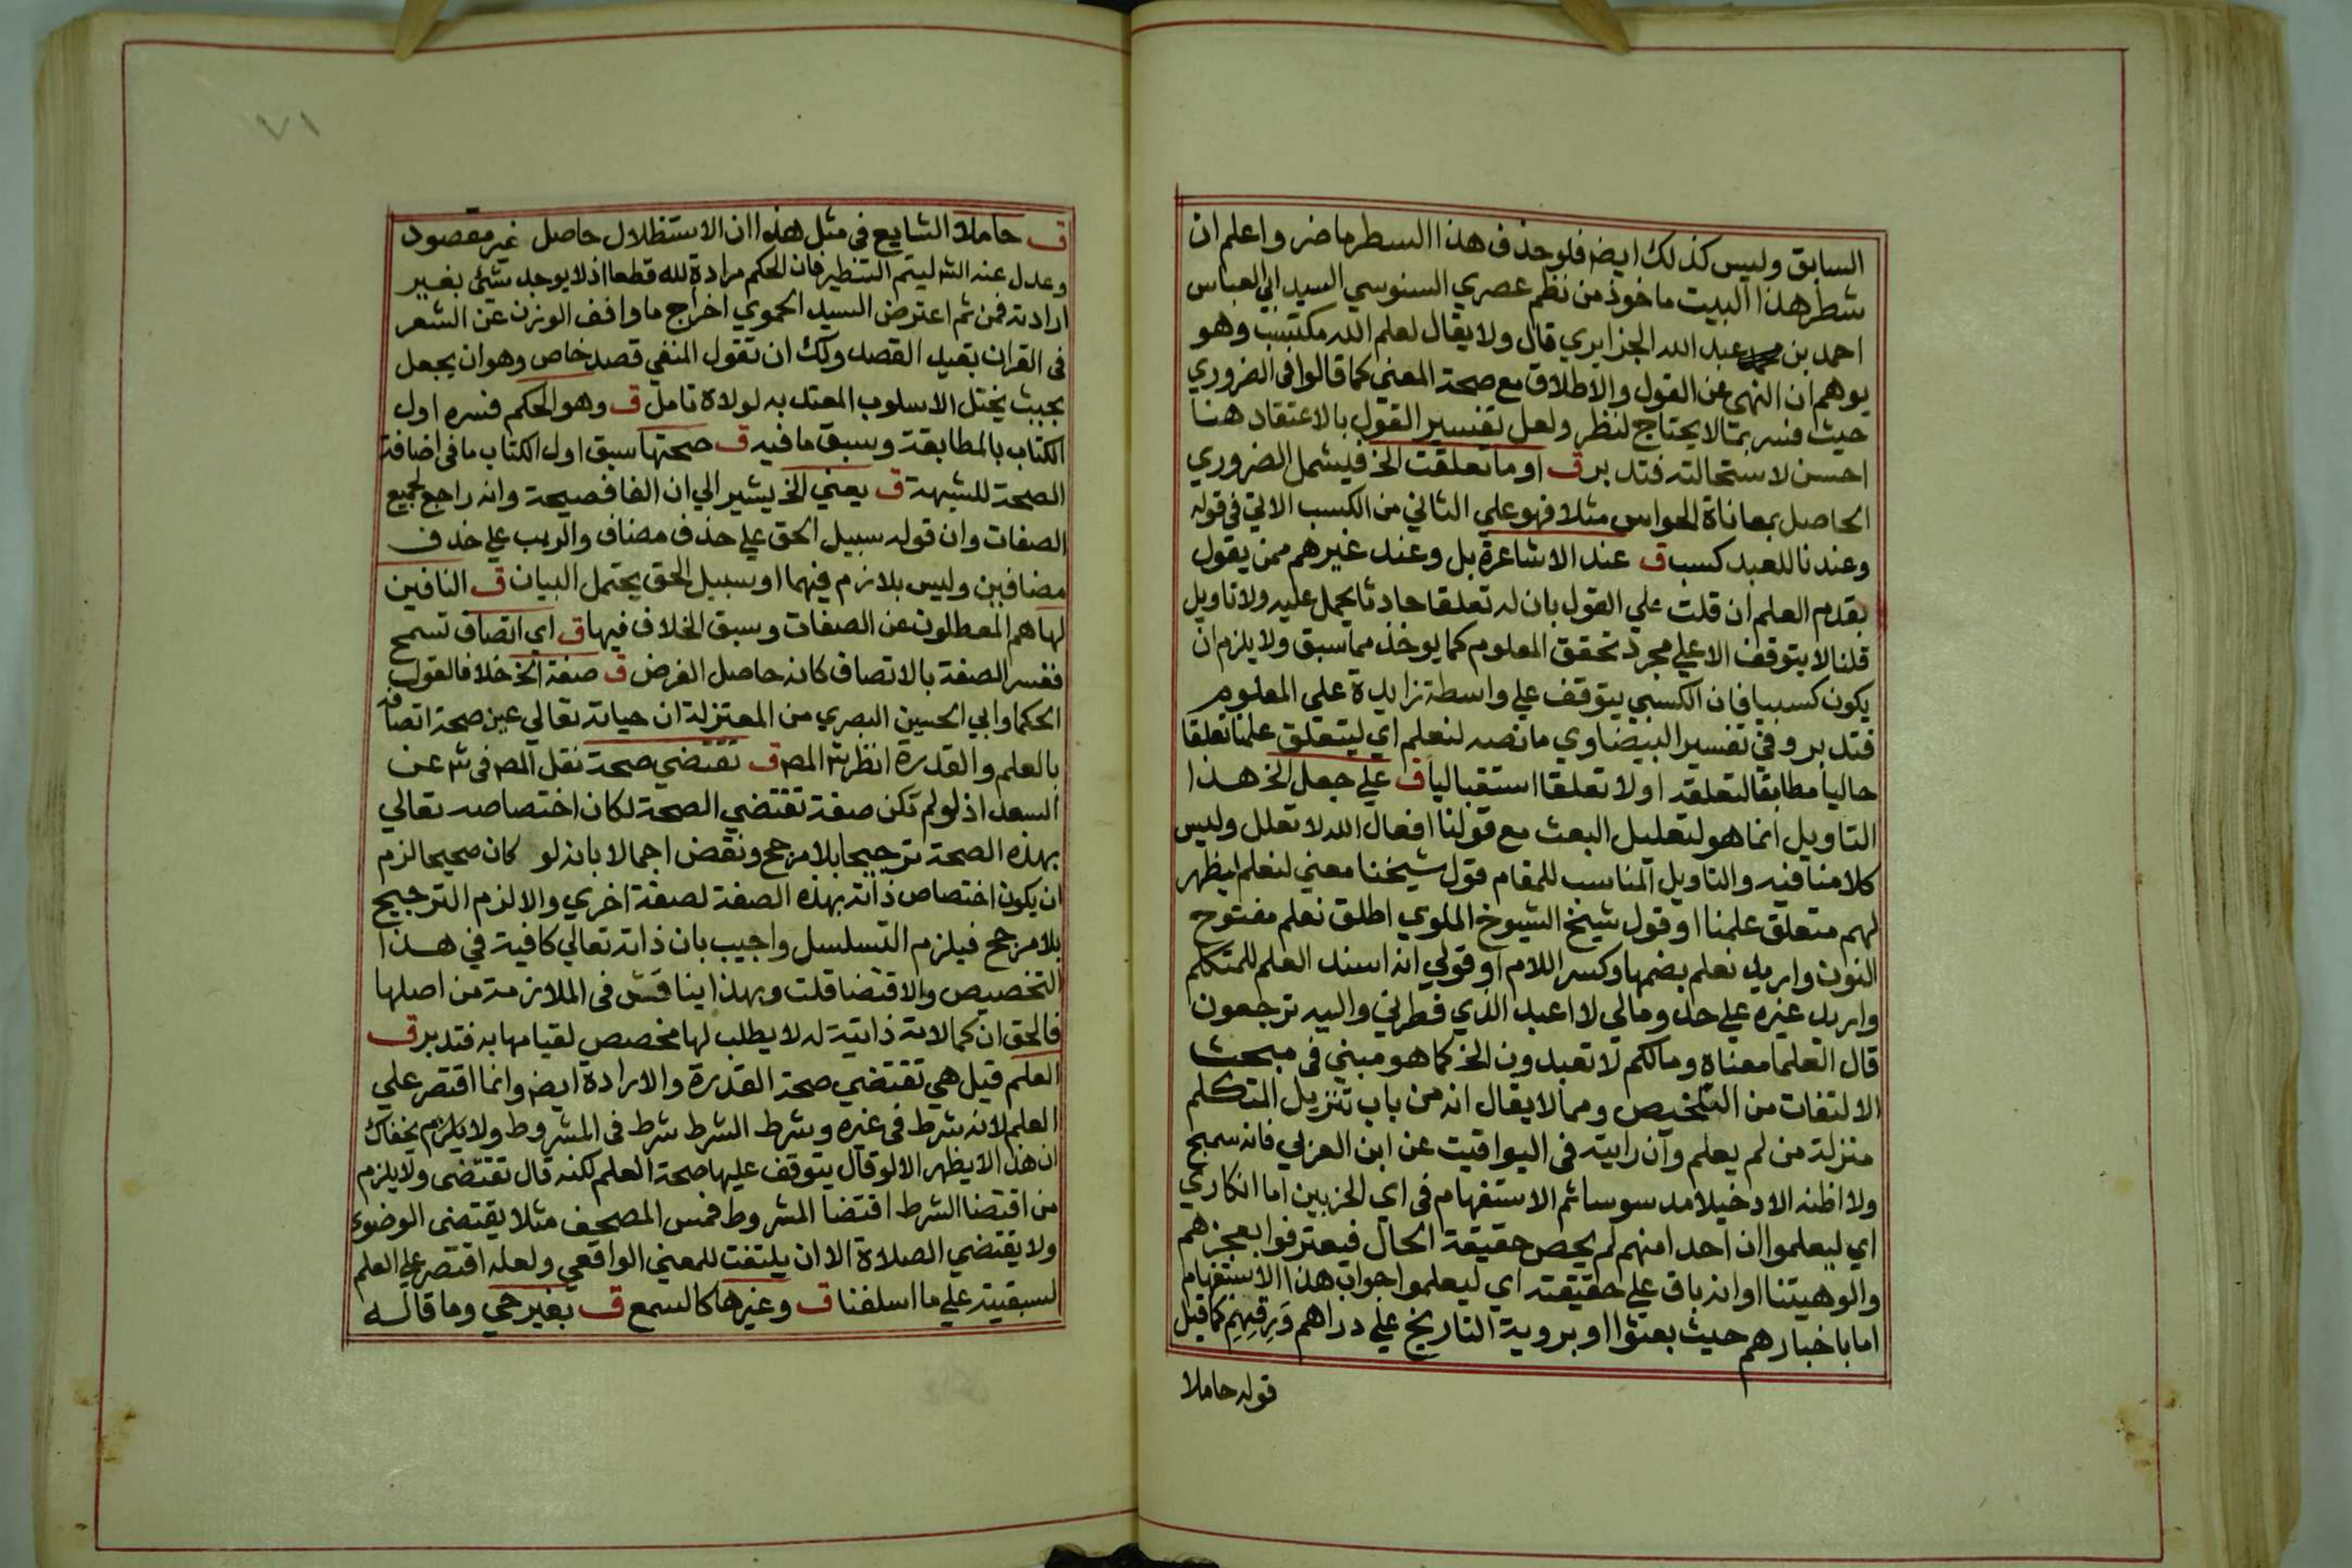 السابق وليس كذلك ايضا فلو حذف هذا السطر ماضر واعلم ان
شطر هذا البيت ماخوذ من نظم عصري السنوسي السيد ابي العباس
احمد بن عبد الله الجزايري قال ولا يقال لعلم الله مكتسب وهو
يوهم ان النهي عن القول والاطلاق مع صحة المعني كما قالوا في الضروري
حيث فسر بما لا يحتاج لنظر ولعل تفسير القول بالاعتقاد هنا
احسن لاستحالته فتدبر ق او ما تعلقت الخ فيشمل الضروري
الحاصل بمعاناة الحواس مثلا فهو علي الثاني من الكسب الاتي في قوله
وعندنا للعبد كسب ق عند الاشاعرة بل وعند غيرهم ممن يقول
بقدم العلم ان قلت علي القول بان له تعلقا حادثا يحمل عليه ولا تاويل
قلنا لا يتوقف الا علي مجرد تحقق المعلوم كما يوخذ مما سبق ولا يلزم ان
يكون كسبيا فان الكسبي يتوقف علي واسطة زايدة علي المعلوم
فتدبر وفي تفسير البيضاوي ما نصه لنعلم اي ليتعلق علمنا تعلقا
حاليا مطابقا لتعلقه اولا تعلقا استقباليا ق علي جعل الخ هذا
التاويل انما هو لتعليل البعث مع قولنا افعال الله لا تعلل وليس
كلامنا فيه والتاويل المناسب للمقام قول شيخنا معني لنعلم ليظهر
لهم متعلق علمنا او قول شيخ الشيوخ الملوي اطلق نعلم مفتوح
النون واريد نعلم بضمها وكسر اللام او قولي انه اسند العلم للمتكلم
واريد غيره علي حد ومالي لا اعبد الذي فطرني واليه ترجعون
قال العلما معناه ومالكم لا تعبدون الخ كما هو مبني في مبحث
الالتفات من التلخيص ومما لا يقال انه من باب تنزيل المتكلم
منزلة من لم يعلم وان رايته في اليواقيت عن ابن العربي فانه سمج
ولا اظنه الا دخيلا مدسوسا ثم الاستفهام في اي الحزبين اما انكاري
اي ليعلموا ان احدا منهم لم يحص حقيقة الحال فيعترفوا بعجزهم
والوهيتنا او انه باق علي حقيقته اي ليعلموا جواب هذا الاستفهام
اما باخبارهم حيث بعثوا او بروية التاريخ علي دراهم ورقهم كما قيل
قوله حاملا
٧١
ق حاملا الشايع في مثل هذا ان الاستظلال حاصل غير مقصود
وعدل عنه الش ليتم التنظير فان الحكم مرادة لله قطعا اذ لا يوجد شئ بغير
ارادته فمن ثم اعترض السيد الحموي اخراج ما وافق الوزن عن الشعر
في القران بقيد القصد ولك ان تقول المنفي قصد خاص وهو ان يجعل
بحيث يختل الاسلوب المعتد به لولاه تامل ق وهو الحكم فسره اول
الكتاب بالمطابقة وسبق ما فيه ق صحتها سبق اول الكتاب ما في اضافة
الصحة للشبهة ق يعني الخ يشير الي ان الفا فصيحة وانه راجع لجميع
الصفات وان قوله سبيل الحق علي حذف مضاف والريب علي حذف
مضافين وليس بلازم فيهما او سبيل الحق يحتمل البيان ق النافين
لها هم المعطلون عن الصفات وسبق الخلاف فيها ق اي اتصاف تسمح
ففسر الصفة بالاتصاف كانه حاصل الغرض ق صفة الخ خلافا لقول
الحكما وابي الحسين البصري من المعتزلة ان حياته تعالي عين صحة اتصافه
بالعلم والقدرة انظر ش المص ق تقتضي صحة نقل المص في ش عن
السعد اذ لو لم تكن صفة تقتضي الصحة لكان اختصاصه تعالي
بهذه الصحة ترجيحا بلا مرجح ونقض اجمالا بانه لو كان صحيحا لزم
ان يكون اختصاص ذاته بهذه الصفة لصفة اخري والا لزم الترجيح
بلا مرجح فيلزم التسلسل واجيب بان ذاته تعالي كافية في هذا
التخصيص والاقتضا قلت وبهذا يناقش في الملازمة من اصلها
فالحق ان كمالاته ذاتية له لا يطلب لها مخصص لقيامها به فتدبر ق
العلم قيل هي تقتضي صحة القدرة والارادة ايضا وانما اقتصر علي
العلم لانه شرط في غيره وشرط الشرط شرط في المشروط ولا يخفاك
ان هذا لا يظهر الا لو قال يتوقف عليها صحة العلم لكنه قال تقتضي ولا يلزم
من اقتضا الشرط اقتضا المشروط فمس المصحف مثلا يقتضي الوضوء
ولا يقتضي الصلاة الا ان يلتفت للمعني الواقعي ولعله اقتصر علي العلم
لسبقيته علي ما اسلفنا ق وغيرها كالسمع ق بغير حي وما قاله